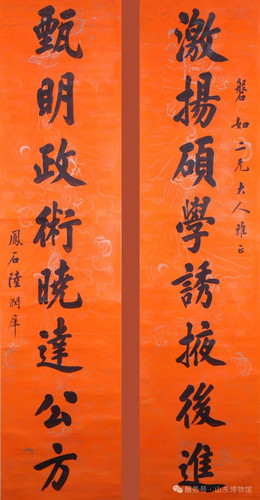 磐如二兄大人雅正
激揚碩學誘掖後進
甄明政術曉達公方
鳳石陸潤庠
服务号·山东博物馆